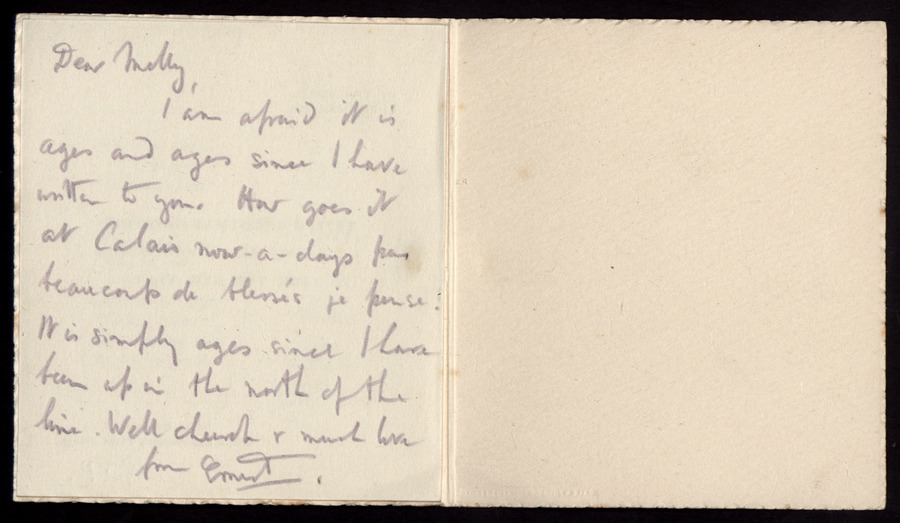 Dear Molly,
I am afraid it is
ages and ages since I have
written to you. How goes it
at Calais now-a-days pas
beaucoup de blessés je pense.
It is simply ages since I have
been up in the north of the
line. Well & much love
from Ernest.